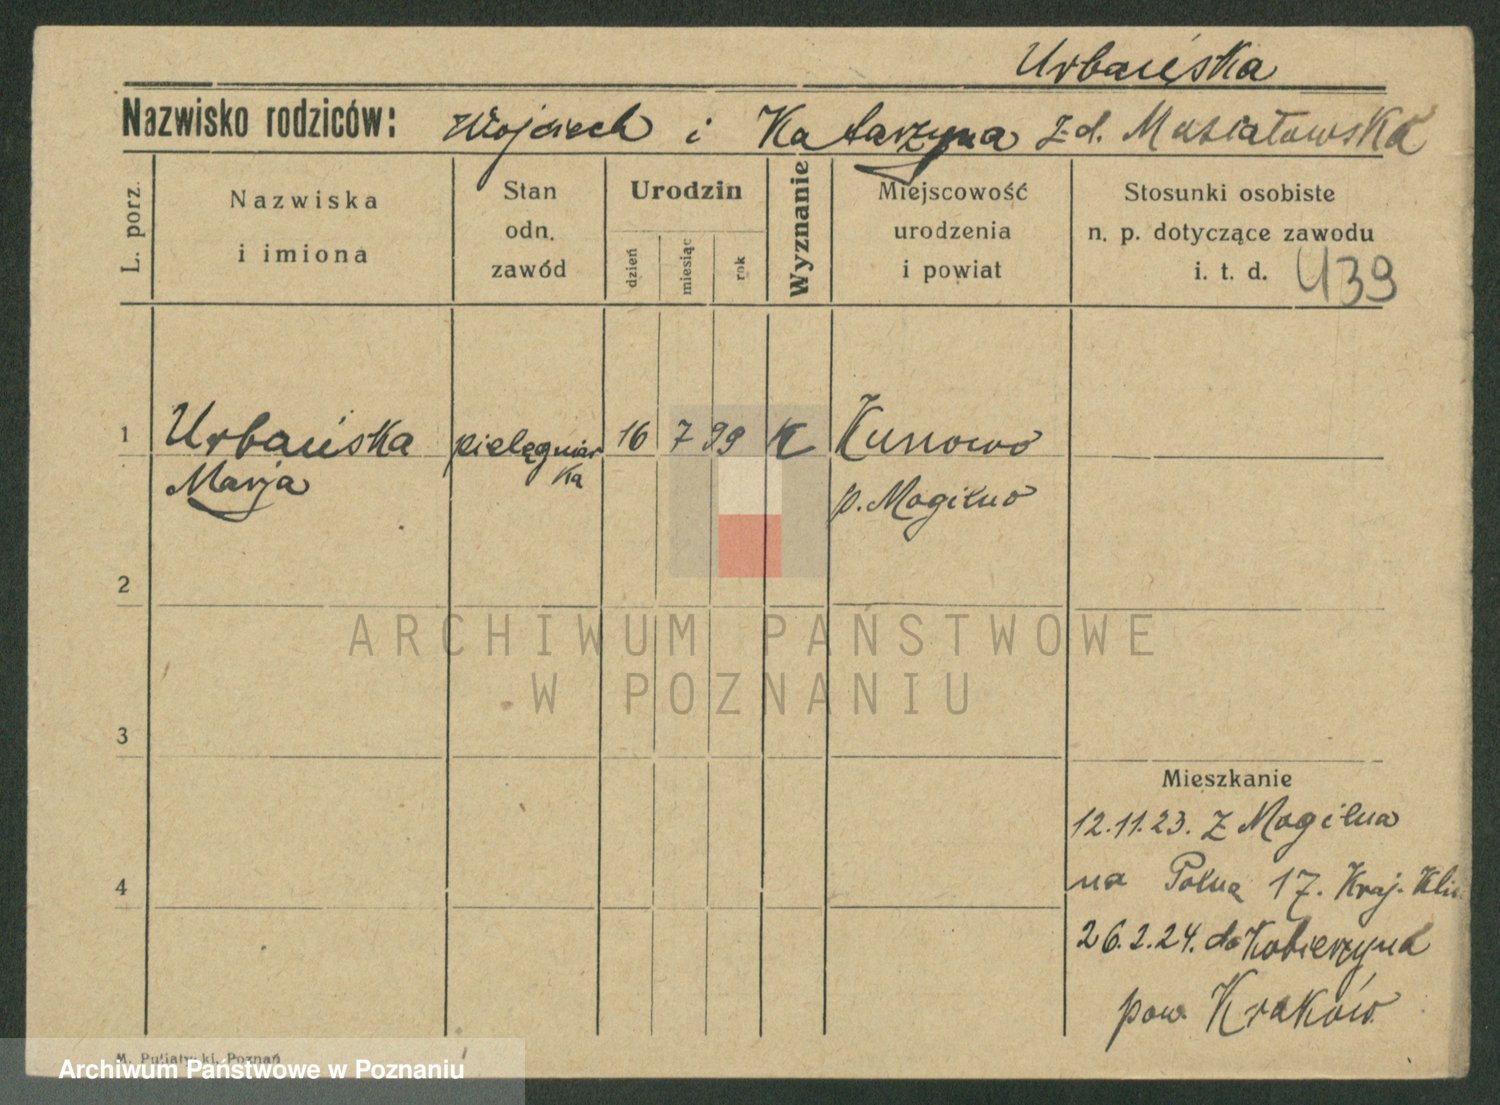 Urbańska
Nazwisko rodziców: Wojciech i Katarzyna z d. Musiałowska
L. porz.
Nazwiska
i imiona
Stan
odn.
zawód
Urodzin
dzień
miesiąc
rok
Wyznanie
Miejscowość
urodzenia
i powiat
Stosunki osobiste
n. p. dotyczące zawodu
i. t. d.
U39
1 Urbańska pielęgniar 16 7 99 K Kunowo
Marja ka p. Mogilno
2
ARCHIWUM PAŃSTWOWE
W POZNANIU
3
Mieszkanie
12.11.23. z Mogilna
na Polną 17. Kraj. Klin.
4
26.2.24. do Kobierzyna
pow. Kraków
M. Putiatycki, Poznań
Archiwum Państwowe w Poznaniu